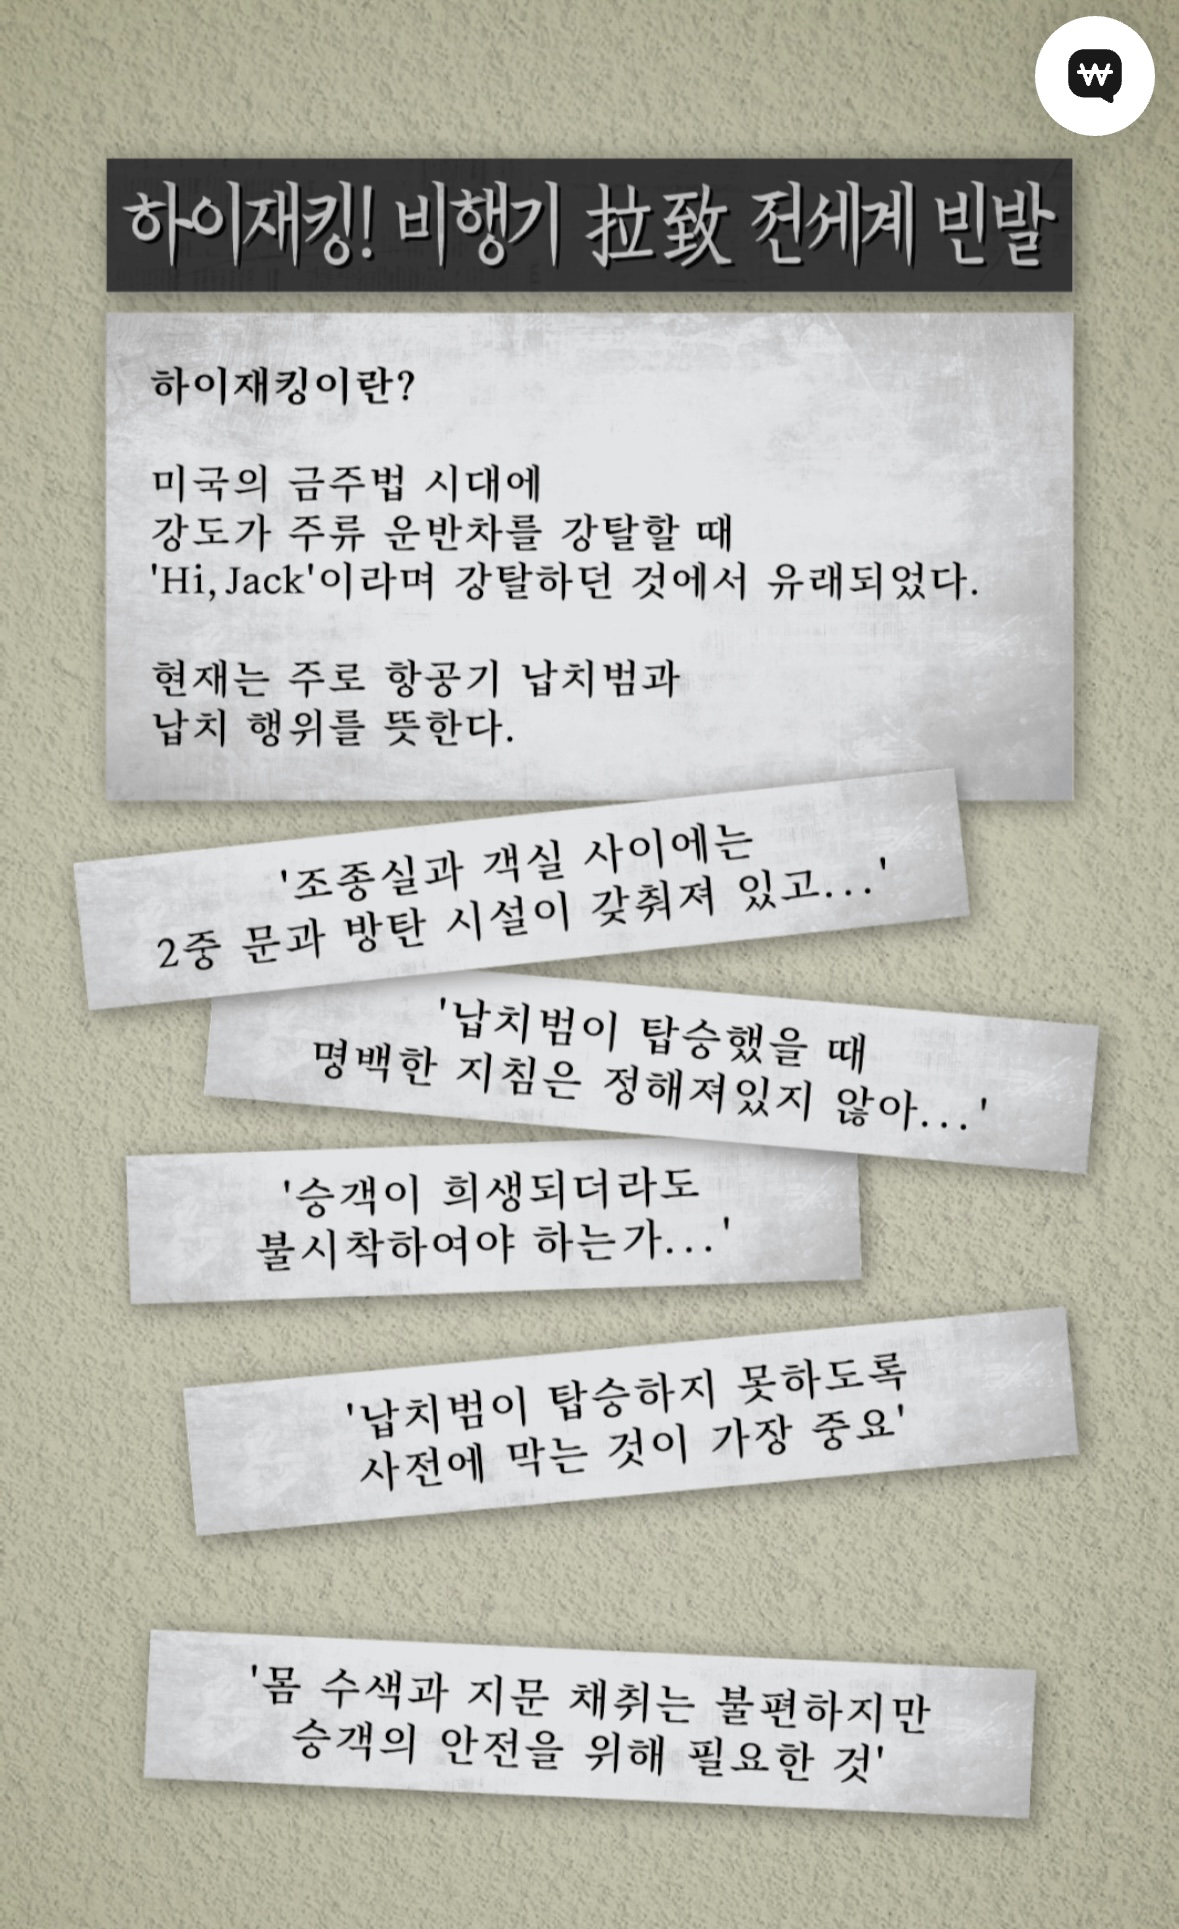 ₩
하이재킹! 비행기 拉致 전세계 빈발
하이재킹이란?
미국의 금주법 시대에
강도가 주류 운반차를 강탈할 때
'Hi, Jack'이라며 강탈하던 것에서 유래되었다.
현재는 주로 항공기 납치범과
납치 행위를 뜻한다.
'조종실과 객실 사이에는
2중 문과 방탄 시설이 갖춰져 있고...'
'납치범이 탑승했을 때
명백한 지침은 정해져있지 않아...'
'승객이 희생되더라도
불시착하여야 하는가...'
'납치범이 탑승하지 못하도록
사전에 막는 것이 가장 중요'
'몸 수색과 지문 채취는 불편하지만
승객의 안전을 위해 필요한 것'